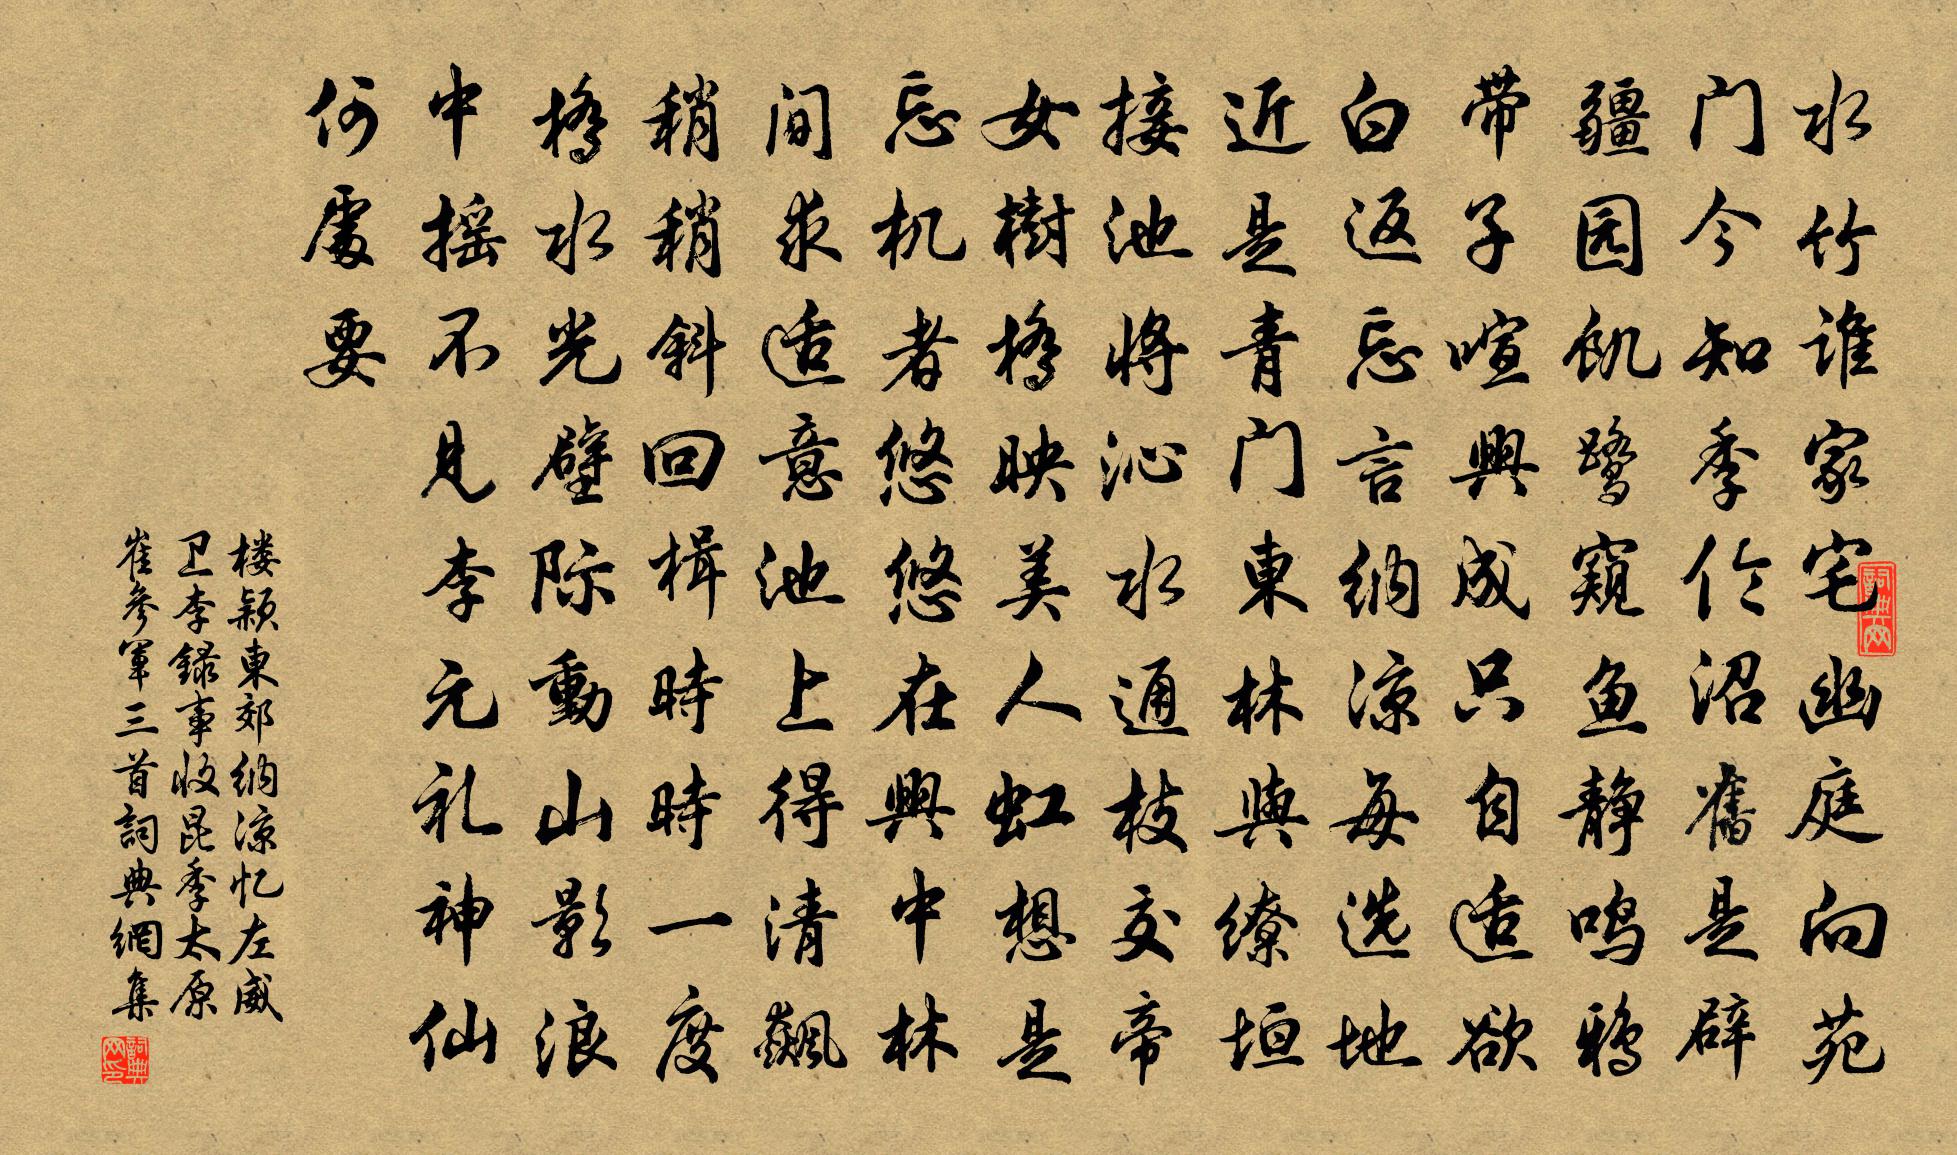 水竹谁家宅幽庭向苑
门今知季伦沼舊是辟
疆园飢鹭窥鱼静鸣鸦
带子喧興成只自适欲
白返忘言纳凉每选地
近是青门東林與缭垣
接池将沁水通枝交帝
女樹橋映美人虹想是
忘机者悠悠在興中林
间求适意池上得清飙
稍稍斜回楫時時一度
橋水光壁际動山影浪
中摇不見李元礼神仙
何處要
楼颖東郊纳凉忆左威
卫李録事收昆季太原
崔参軍三首詞典網集
詞典网
詞典网印